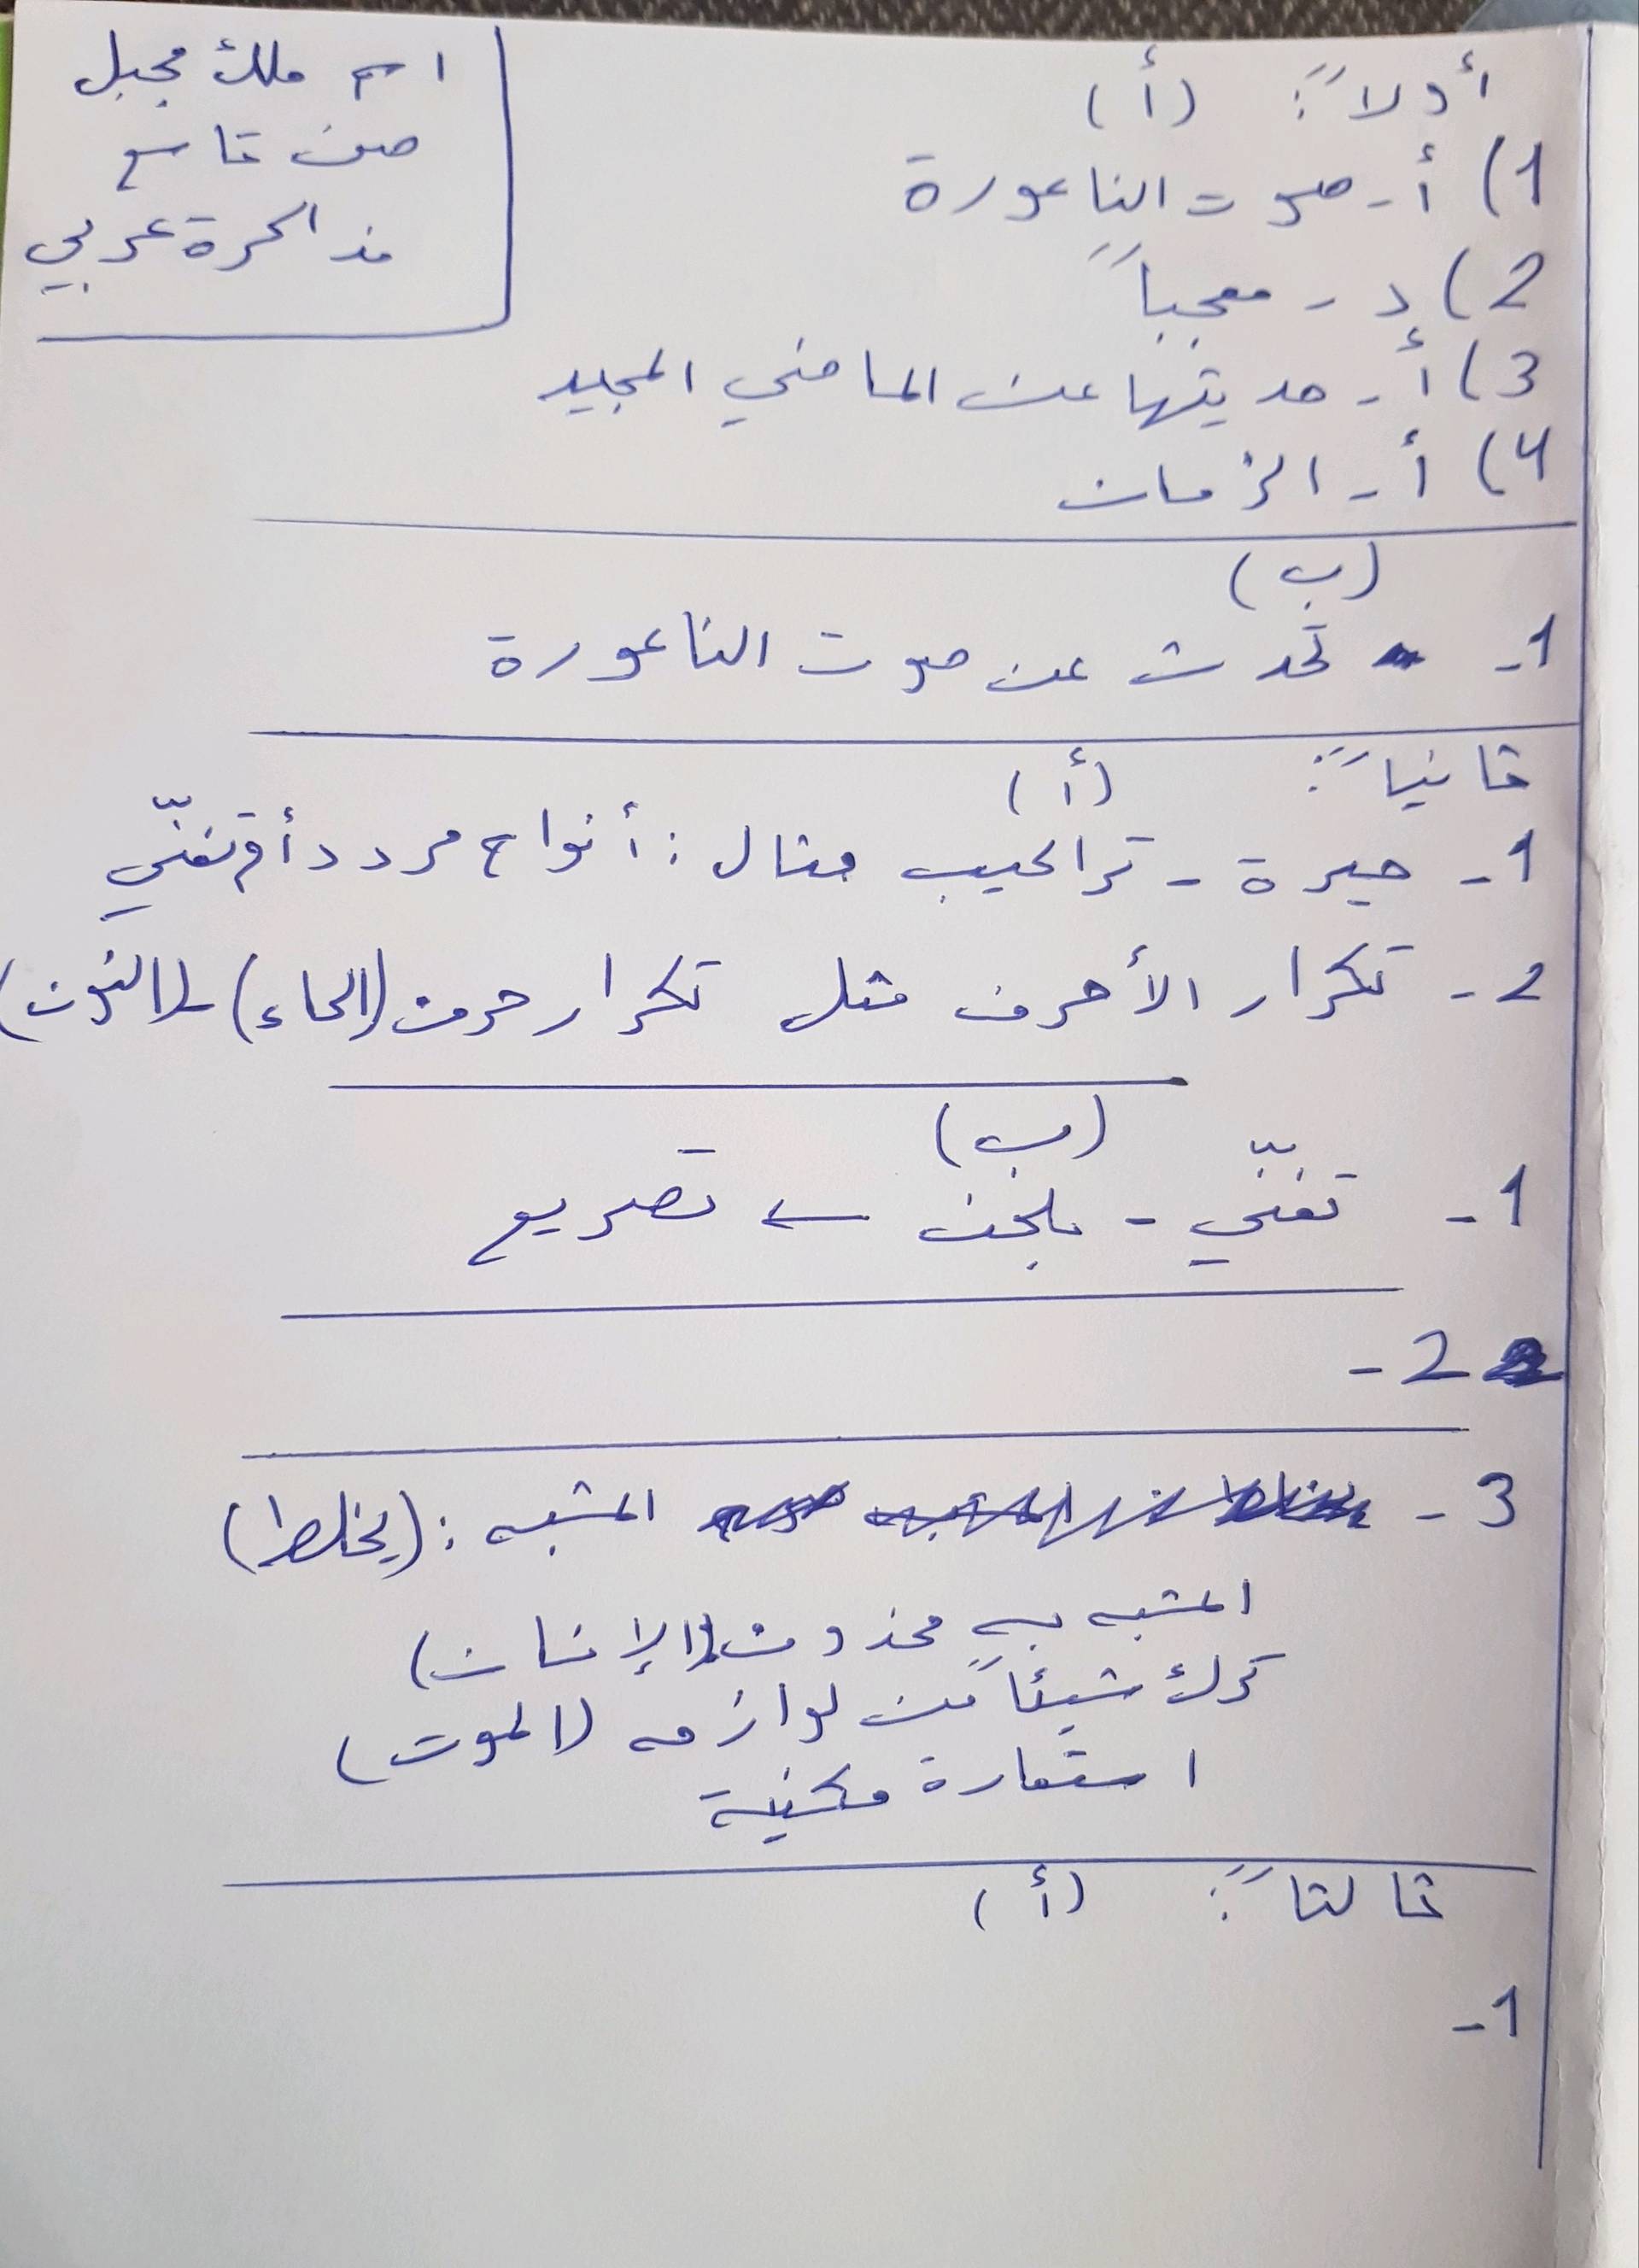 اسم ملك مجبل
صف تاسع
مذاكرة عربي
أولاً: (أ)
1) أ- صوت الناعورة
2) د- معجباً
3) أ- حديثها عن الماضي المجيد
4) أ- الزمان
(ب)
1- تحدث عن صوت الناعورة
ثانياً: (أ)
1- حيرة - تراكيب مثال: أنواح مردد أم تغنّي
2- تكرار الأحرف مثل تكرار حرف (الحاء) (النون)
(ب)
1- تغنّي - ← تصريع
2-
3- المشبه: (يخلط)
المشبه به محذوف (الإنسان)
ترك شيئاً من لوازمه (الموت)
استعارة مكنية
ثالثاً: (أ)
1-